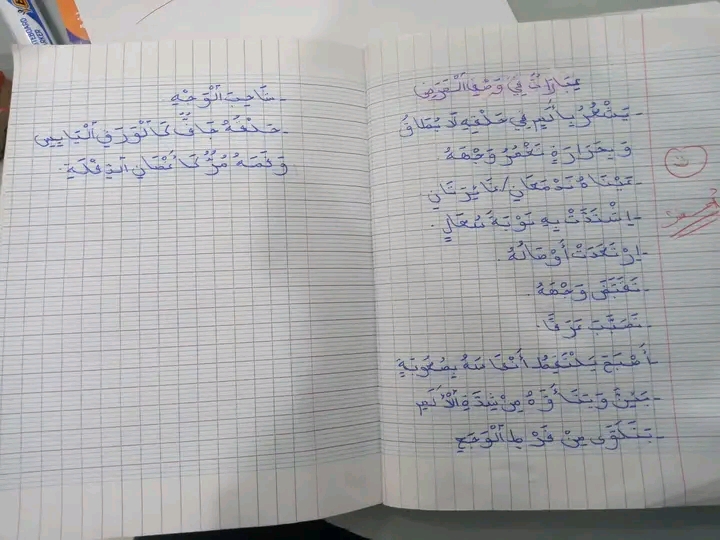 عِبَارَاتٌ فِي وَصْفِ الْمَرَضِ
- يَشْعُرُ بِأَلَمٍ فِي حَلْقِهِ لَا يُطَاقُ
وَ بِحَرَارَةٍ تَغْمُرُ وَجْهَهُ
- عَيْنَاهُ تَدْمَعَانِ / غَائِرَتَانِ
- اِشْتَدَّتْ بِهِ نَوْبَةُ سُعَالٍ.
- اِرْتَعَدَتْ أَوْصَالُهُ.
- وَجْهُهُ.
- تَصَبَّبَ عَرَقًا.
- أَصْبَحَ يَلْتَقِطُ أَنْفَاسَهُ بِصُعُوبَةٍ
- يَئِنُّ وَ يَتَأَوَّهُ مِنْ شِدَّةِ الْأَلَمِ
- يَتَلَوَّى مِنْ فَرْطِ الْوَجَعِ
- شَاحِبَ الْوَجْهِ
- حَلْقُهُ جَافٌّ كَالْوَرَقِ الْيَابِسِ
وَ فَمُهُ مُرٌّ كَأَغْصَانِ الدِّفْلَةِ.